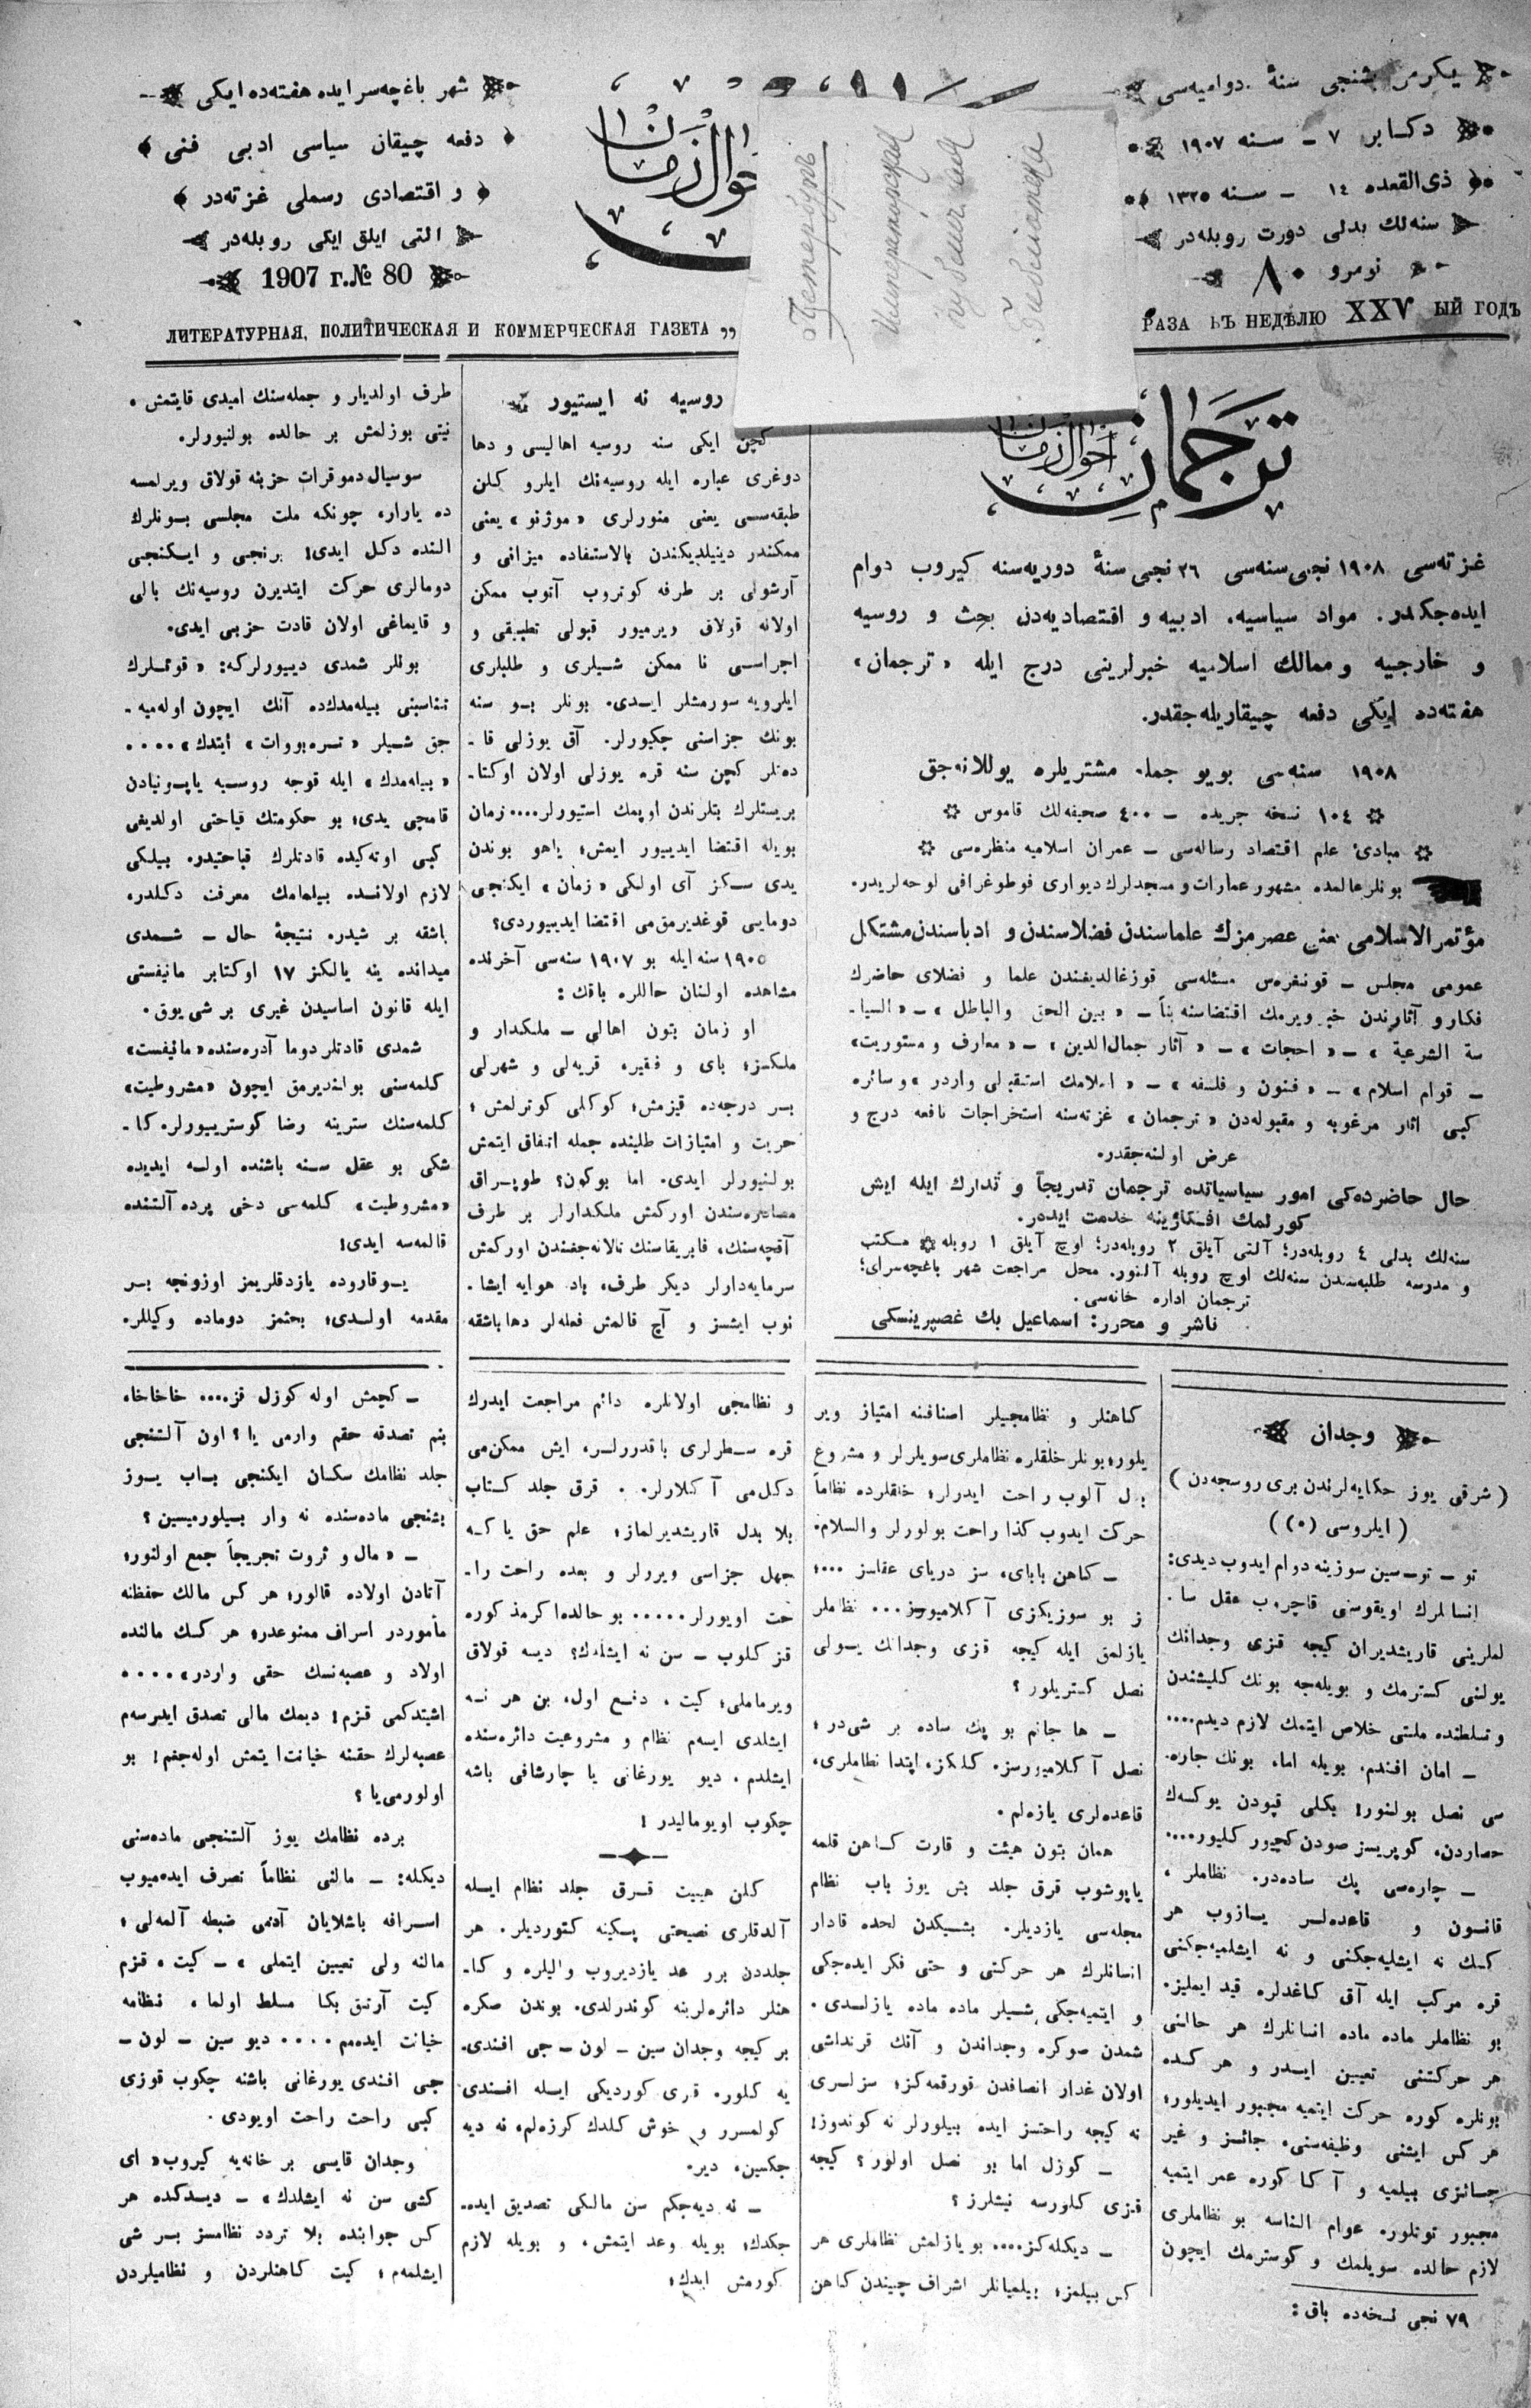 یكرمی بشنجی سنۀ دوامیەسی
دكابر ٧ ـ سنه ١٩٠٧
ذی القعده ١٤ ـ سنه ١٣٢٥
سنەلك بدلی دورت روبلەدر
نومرو ٨٠
РАЗА ВЪ НЕДѢЛЮ XXV ЫЙ ГОДЪ
احوال زمان
Петербургъ
Императорская
публичная
библіотека
شهر باغچەسرایده هفتەده ایكی
دفعه چیقان سیاسی ادبی فنی
و اقتصادی رسملی غزتەدر
التی ایلق ایكی روبلەدر
1907 г. № 80
ЛИТЕРАТУРНАЯ, ПОЛИТИЧЕСКАЯ И КОММЕРЧЕСКАЯ ГАЗЕТА „
ترجمان احوال زمان
غزتەسی ١٩٠٨ نجی سنەسی ٢٦ نجی سنۀ دوریەسنه كیروب دوام
ایدەجكدر. مواد سیاسیه، ادبیه و اقتصادیەدن بحث و روسیه
و خارجیه و ممالك اسلامیه خبرلرینی درج ایله «ترجمان»
هفتەده ایكی دفعه چیقاریلەجقدر.
١٩٠٨ سنەسی بویو جمله مشتریلره یوللانەجق
١٠٤ نسخه جریده ـ ٤٠٠ صحیفەلك قاموس
مبادئ علم اقتصاد رسالەسی ـ عمران اسلامیه منظرەسی
بونلر عالمده مشهور عمارات و مسجدلرك دیواری فوطوغرافی لوحەلریدر.
مؤتمر الاسلامی یعنی عصرمزك علماسندن فضلاسندن و ادباسندن مشتكل
عمومی مجلس ـ قونغرەس مسئلەسی قوزغالدیغندن علما و فضلای حاضرك
فكار و آثارندن خبر ویرمك اقتضاسنه بناً ـ «بین الحق والباطل» ـ «السیا ـ
سة الشرعیة» ـ «احجات» ـ «آثار جمال‌الدین» ـ «معارف و مستوریت»
ـ قوام اسلام» ـ «فنون و فلسفه» ـ «اسلامك استقبالی واردر» و سائره
كبی اثار مرغوبه و مقبولەدن «ترجمان» غزتەسنه استخراجات نافعه درج و
عرض اولنەجقدر.
حال حاضردەكی امور سیاسیاتده ترجمان تدریجاً و تدارك ایله ایش
كورلمك افكارینه خدمت ایدەر.
سنەلك بدلی ٤ روبلەدر؛ آلتی آیلق ٢ روبلەدر؛ اوچ آیلق ١ روبله مكتب
و مدرسه طلبەسندن سنەلك اوچ روبله آلنور. محل مراجعت شهر باغچەسرای؛
ترجمان اداره خانەسی.
ناشر و محرر: اسماعیل بك غصپرینسكی
روسیه نه ایستیور
كچن ایكی سنه روسیه اهالیسی و دها
دوغری عباره ایله روسیەنك ایلرو كلن
طبقەسی یعنی منورلری «موژنو» یعنی
ممكندر دینیلدیكندن بالاستفاده میزانی و
آرشونی بر طرفه كوتروب آتوب ممكن
اولانه قولاق ویرمیور قبولی تطبیقی و
اجراسی نا ممكن شیلری و طلبلری
ایلرویه سورمشلر ایدی. بونلر بو سنه
بونك جزاسنی چكیورلر. آق یوزلی قا ـ
دەتلر كچن سنه قره یوزلی اولان اوكتا ـ
بریستلرك بتلرندن اوپمك استیورلر.... زمان
بویله اقتضا ایدییور ایمش؛ یاهو بوندن
یدی سكز آی اولكی «زمان» ایكنجی
دومایی قوغدیرمق‌می اقتضا ایدییوردی؟
١٩٠٥ سنه ایله بو ١٩٠٧ سنەسی آخرنده
مشاهده اولنان حاللره باقك:
او زمان بتون اهالی ـ ملكدار و
ملكسز؛ بای و فقیر، قریەلی و شهرلی
بر درجەده قیزمش؛ كوكلی كوترلمش؛
حریت و امتیازات طلبنده جمله اتفاق ایتمش
بولنیورلر ایدی. اما بوكون؟ طوپراق
مصادرەسندن اوركمش ملكدارلر بر طرف
آقچەسنك، فابریقاسنك تالانەجغندن اوركمش
سرمایەدارلر دیگر طرف، باد هوایه ایشا ـ
نوب ایشسز و آچ قالمش فعلەلر دها باشقه
طرف اولدیلر و جملەسنك امیدی قایتمش،
نیتی بوزلمش بر حالده بولنیورلر.
سوسیال دموقرات حزبنه قولاق ویرلمسه
ده یارار، چونكه ملت مجلسی بونلرك
النده دكل ایدی؛ برنجی و ایكنجی
دومالری حركت ایتدیرن روسیەنك بالی
و قایماغی اولان قادت حزبی ایدی.
بونلر شمدی دییورلركه: «قوتلرك
تناسبنی بیلەمدك‌ده آنك ایچون اولەمیه ـ
جق شیلر «تره‌بووات» ایتدك»....
«بیلەمدك» ایله قوجه روسیه یاپونیادن
قامچی یدی؛ بو حكومتك قباحتی اولدیغی
كبی اوتەكیده قادتلرك قباحتیدر. بیلكی
لازم اولانده بیلمامك معرفت دكلدر،
باشقه بر شیدر. نتیجۀ حال ـ شمدی
میدانده ینه یالكز ١٧ اوكتابر مانیفستی
ایله قانون اساسیدن غیری بر شی یوق.
شمدی قادتلر دوما آدرەسنده «مانیفست»
كلمەسنی بولندیرمق ایچون «مشروطیت»
كلمەسنك سترینه رضا كوسترییورلر. كا ـ
شكی بو عقل سنه باشنده اولسه ایدیده
«مشروطیت» كلمەسی دخی پرده آلتنده
قالمەسه ایدی!
یوقاروده یازدقلریمز اوزونجه بر
مقدمه اولدی؛ بحثمز دوماده وكیللر.
وجدان
(شرقی یوز حكایەلرندن بری روسجەدن)
(ایلروسی (٥))
تو ـ تو ـ سین سوزینه دوام ایدوب دیدی:
انسانلرك اویقوسنی قاچروب عقل سا ـ
لملرینی قاریشدیران كیجه قزی وجدانك
یولنی كسترمك و بویلەجه بونك كلیشندن
و تسلطنده ملتی خلاص ایتمك لازم دیدم....
ـ امان افندم، بویله اما، بونك چاره ـ
سی نصل بولنور! بكلی قپودن یوكسك
حصاردن، كوپریسز صودن كچیور كلیور....
ـ چارەسی پك سادەدر. نظاملر،
قانون و قاعدەلر یازوب هر
كسك نه ایشلیەجكنی و نه ایشلمیەجكنی
قره مركب ایله آق كاغدلره قید ایملیز.
بو نظاملر ماده ماده انسانلرك هر حالنی
هر حركتنی تعیین ایدر و هر كسده
بونلره كوره حركت ایتمیه مجبور ایدیلور؛
هر كس ایشنی وظیفەسنی، جائسز و غیر
جائزی بیلمیه و آكا كوره عمر ایتمیه
مجبور توتلور. عوام الناسه بو نظاملری
لازم حالده سویلمك و كوسترمك ایچون
٧٩ نجی نسخەده باق:
كاهنلر و نظامجیلر اصنافنه امتیاز ویر
یلور؛ بونلر خلقلره نظاملری سویلرلر و مشروع
بدل آلوب راحت ایدرلر؛ خلقلرده نظاماً
حركت ایدوب كذا راحت بولورلر والسلام.
ـ كاهن بابای، سز دریای عقلسز ...؛
ز بو سوزیكزی آكلامیورز... نظاملر
یازلمق ایله كیجه قزی وجدانك یولی
نصل كستریلور؟
ـ ها جانم بو پك ساده بر شی‌در؛
نصل آكلامیورسز. كلكز، ابتدا نظاملری،
قاعدەلری یازەلم.
همان بتون هیئت و قارت كاهن قلمه
یاپوشوب قرق جلد بش یوز باب نظام
مجلەسی یازدیلر. بشیكدن لحده قادار
انسانلرك هر حركتی و حتی فكر ایدەجكی
و ایتمیەجكی شیلر ماده ماده یازلسدی.
شمدن صوكره وجداندن و آنك قرنداشی
اولان غدار انصافدن قورقمەكز؛ سزلری
نه كیجه راحتسز ایده بیلورلر نه كوندوز!
ـ كوزل اما بو نصل اولور؟ كیجه
قزی كلورسه نیشلرز؟
ـ دیكلەكز.... بو یازلمش نظاملری هر
كس بیلمز؛ بیلمیانلر اشراف چیندن كاهن
و نظامجی اولانلره دائم مراجعت ایدرك
قره سطرلری باقدررلر، ایش ممكن‌می
دكل‌می آكلارلر.. قرق جلد كتاب
بلا بدل قاریشدیرلماز؛ علم حق یا كه
جهل جزاسی ویررلر و بعده راحت را ـ
حت اویورلر..... بو حالده اكرمذكوره
قز كلوب ـ سن نه ایشلدك؟ دیسه قولاق
ویرماملی؛ كیت، دفع اول، بن هر نه
ایشلدی ایسەم نظام و مشروعیت دائرەسنده
ایشلدم. دیو یورغانی یا چارشافی باشه
چكوب اویومالیدر!
كلن هیئت قرق جلد نظام ایله
آلدقلری نصیحتی پكینه كتوردیلر. هر
جلددن برر عدد یازدیروب والیلره و كا ـ
هنلر دائرەلرینه كوندرلدی. بوندن صكره
بر كیجه وجدان سین ـ لون ـ جی افندی ـ
یه كلور. قزی كوردیكی ایله افندی
كولمسرر و خوش كلدك كرزەلم، نه دیه
جكسین، دیر.
ـ نه دیەجكم سن مالكی تصدیق ایدە ـ
جكدك؛ بویله وعد ایتمش، و بویله لازم
كورمش ایدك؛
ـ كچمش اوله كوزل قز.... خاخاخا،
بنم تصدقه حقم وارمی یا؟ اون آلتنجی
جلد نظامك سكسان ایكنجی باب یوز
بشنجی مادەسنده نه وار بیلورمیسین؟
ـ «مال و ثروت تجریجاً جمع اولنور؛
آتادن اولاده قالور؛ هر كس مالك حفظنه
مأموردر اسراف ممنوعدر؛ هر كسك مالنده
اولاد و عصبەنسك حقی واردر»....
اشیتدكمی قزم! دیمك مالی تصدق ایدرسەم
عصبەلرك حقنه خیانت ایتمش اولەجغم! بو
اولورمی یا؟
برده نظامك یوز آلتنجی مادەسنی
دیكله: ـ مالنی نظاماً تصرف ایدەمیوب
اسرافه باشلایان آدمی ضبطه آلمەلی؛
مالنه ولی تعیین ایتملی» ـ كیت، قزم
كیت آرتق بكا مسلط اولما، نظامه
خیانت ایدەمم.... دیو سین ـ لون ـ
جی افندی یورغانی باشنه چكوب قوزی
كبی راحت راحت اویودی.
وجدان قایسی بر خانەیه كیروب «ای
كشی سن نه ایشلدك» ـ دیدكده هر
كس جوابنده بلا تردد نظامسز بر شی
ایشلمەم؛ كیت كاهنلردن و نظامیلردن